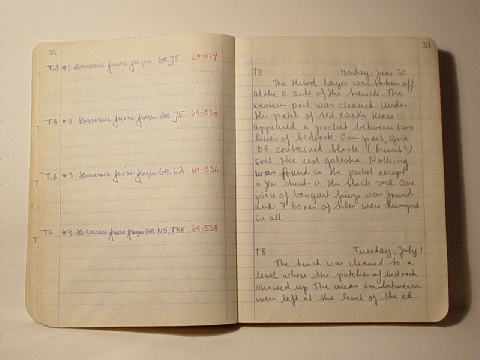 32
T.8 #1. Banquet frieze fragm. GR. J5 69-514
T.8 #2. Banquet frieze fragm. GR. J5 69-530
T.8 #3. Banquet frieze fragm. GR. L2 69-536
T.8 #4. Banquet frieze fragm. GR. N5, 69-538
33
T8 Monday, June 30
The third layer was taken off
at the E side of the trench. The
western part was cleaned. Under
the patch of red earth there
appeared a pocket between two
lines of bedrock. One part, grid
D5 contained black (burnt?)
soil. The rest Nothing
was found in the pocket except
a few sherds in the black soil. One
piece of banquet frieze was found
and 7 boxes of tiles were dumped
in all.
T8 Tuesday, July 1
The trench was cleaned to a
level where the patches of bedrock
showed up. The areas in between
were left at the level of the ad-